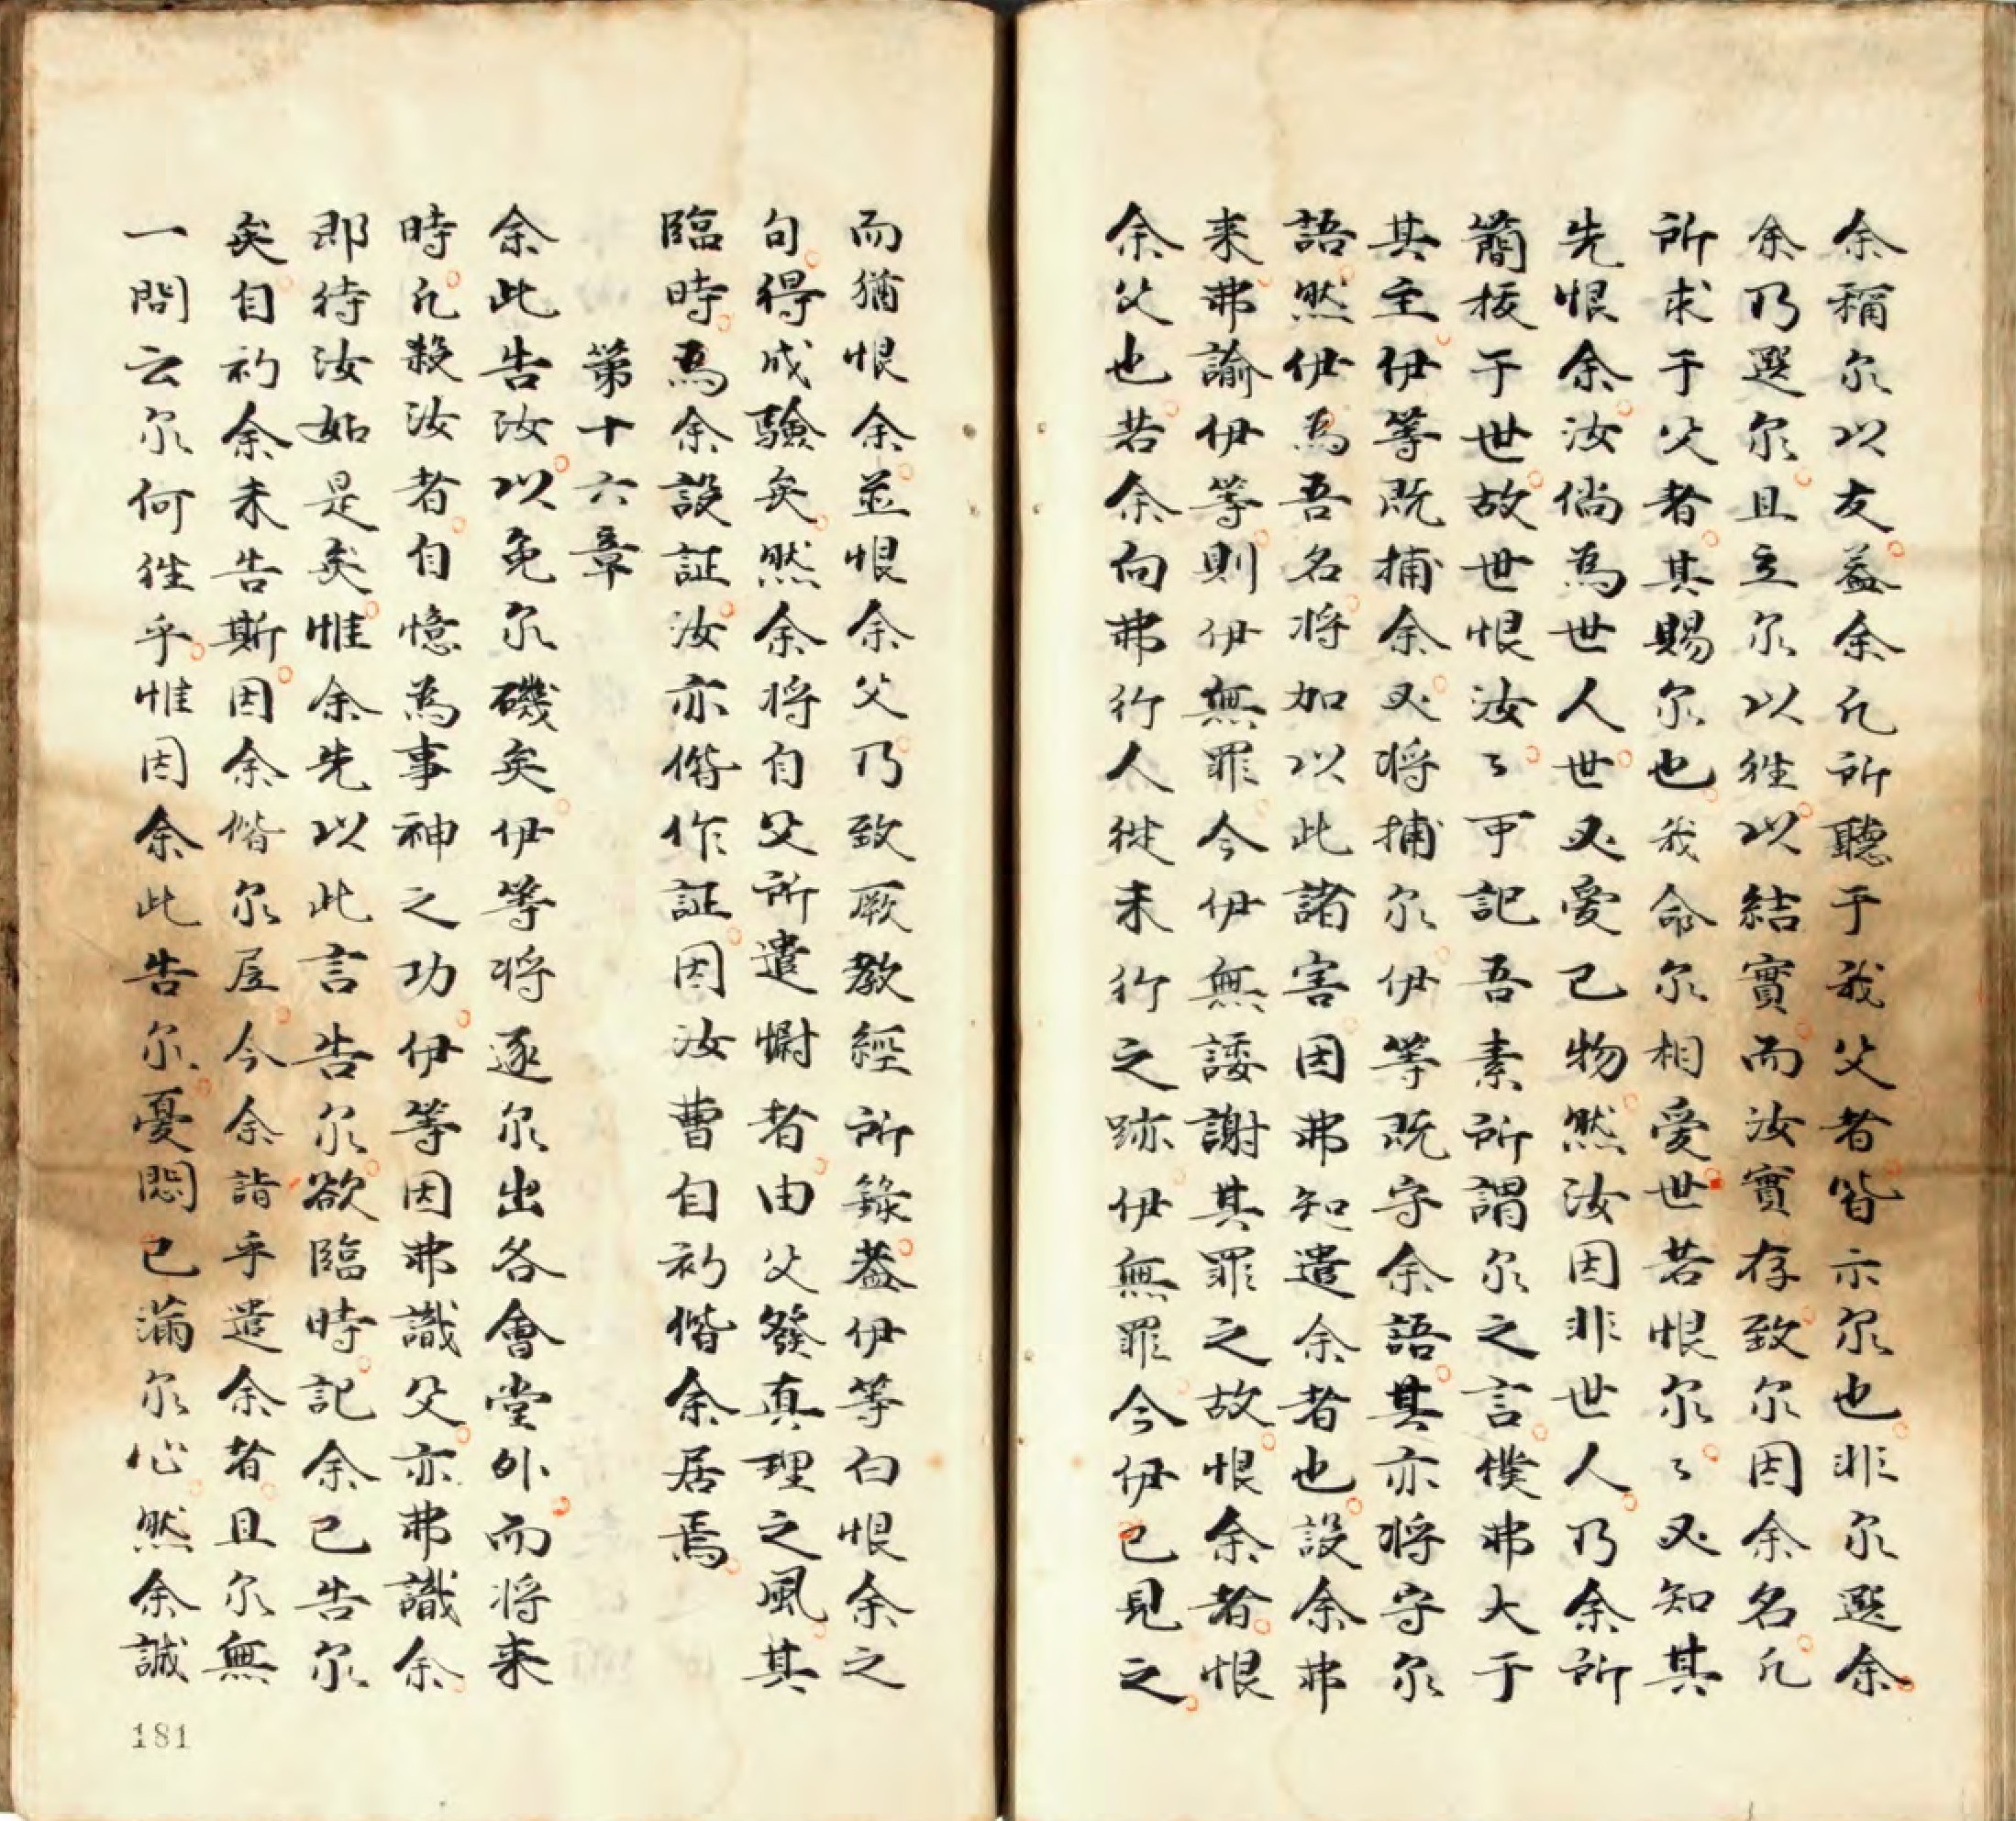 余稱尔以友。葢余凢所聽于我父者。皆示尔也。非尔選余。
余乃選尔。且立尔以徃。以結實。而汝實存。致尔因余名。凢
所求于父者。其賜尔也。我命尔相愛。世若恨尔。〻必知其
先恨余。汝倘為世人。世必愛己物。然汝因非世人。乃余所
簡拔于世。故世恨汝。〻可記吾素所謂尔之言。僕弗大于
其主。伊等既捕余。必将捕尔。伊等既守余語。其亦将守尔
語。然伊為吾名。将加以此諸害。因弗知遣余者也。設余弗
来。弗諭伊等。則伊無罪。今伊無諉謝其罪之故。恨余者。恨
余父也。若余向弗行人從未行之跡。伊無罪。今伊已見之。
而猶恨余。並恨余父。乃致厥教經所錄。葢伊等白恨余之
句。得成驗矣。然余将自父所遣慰者。由父發真理之風。其
臨時。為余設証。汝亦偕作証。因汝曹自初偕余居焉。
第十六章
余此告汝。以免尔磯矣。伊等将逐尔出各會堂外。而将来
時。凢殺汝者。自憶為事神之功。伊等因弗識父。亦弗識余。
即待汝如是矣。惟余先以此言告尔。欲臨時。記余已告尔
矣。自初余未告斯。因余偕尔居。今余詣乎遣余者。且尔無
一問云尔何徃乎。惟因余此告尔。憂悶已滿尔心。然余誠
181